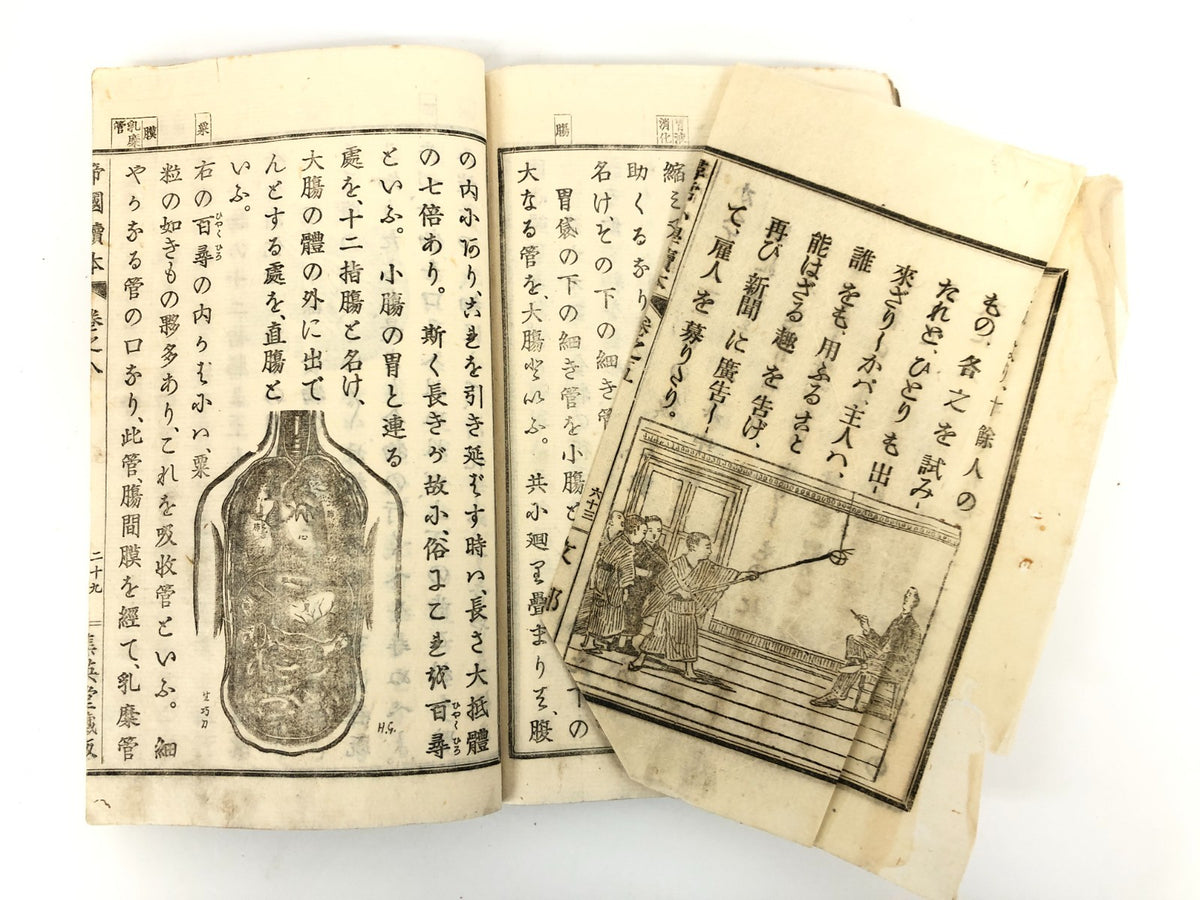 もの、各之を試み
たれど、ひとりも出
來ざりしかバ、主人ハ、
誰をも、用ふること
能はざる趣を告げ、
再び新聞に廣告し
て、雇人を募りたり。
六十三
腸
消化
助くるなり
名け、その下の細き管
胃袋の下の細き管を小腸と
大なる管を、大腸といふ。共に廻り疊まりて、腹
の内にあり、これを引き延ばす時ハ、長さ大抵體
の七倍あり。斯く長きが故に、俗にこれを百尋
ひやくひろ
といふ。小腸の胃と連る
處を、十二指腸と名け、
大腸の體の外に出で
んとする處を、直腸と
いふ。
右の百尋の内かはにハ、粟
ひやくひろ
粒の如きもの夥多あり、これを吸收管といふ。細
やかなる管の口なり、此管、腸間膜を經て、乳糜管
粟
膜
乳糜管
帝國讀本
卷之八
二十九
集英堂藏版
生巧刀
H.G.